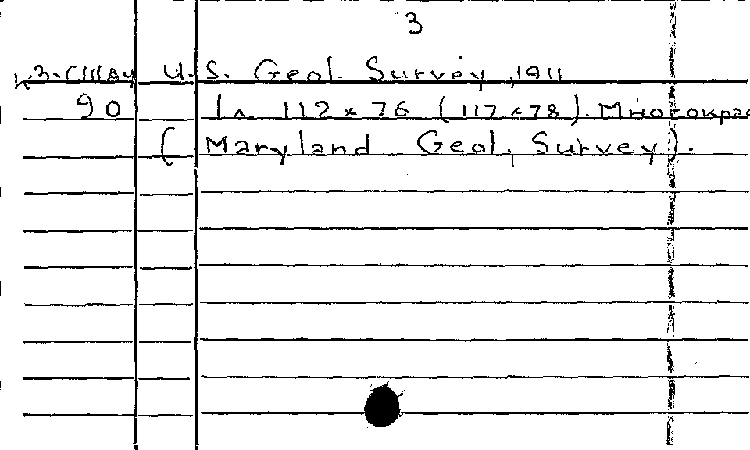 3
U.S. Geol. Survey, 1911
90 1л. 112 × 76 (117 × 78). Многокрас
(Maryland Geol. Survey).